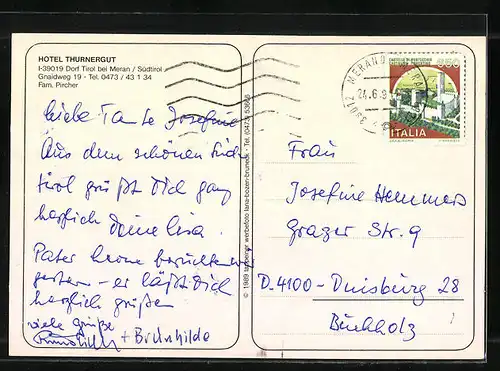 HOTEL THURNERGUT
I-39019 Dorf Tirol bei Meran / Südtirol
Gnaidweg 19 - Tel. 0473 / 43 1 34
Fam. Pircher
Liebe Tante Josefine
Aus dem schönen Süd
tirol grüßt Dich ganz
herzlich Deine Lisa.
Pater
gestern - er läßt Dich
herzlich grüßen
viele Grüße
+ Brunhilde
© 1989 tappeiner werbefoto lana-bozen-bruneck - Tel. (0473) 53666
39012 MERANO
24.6.9
650
ITALIA
Frau
Josefine Hemmers
Grazer Str. 9
D-4100-Duisburg 28
Buchholz